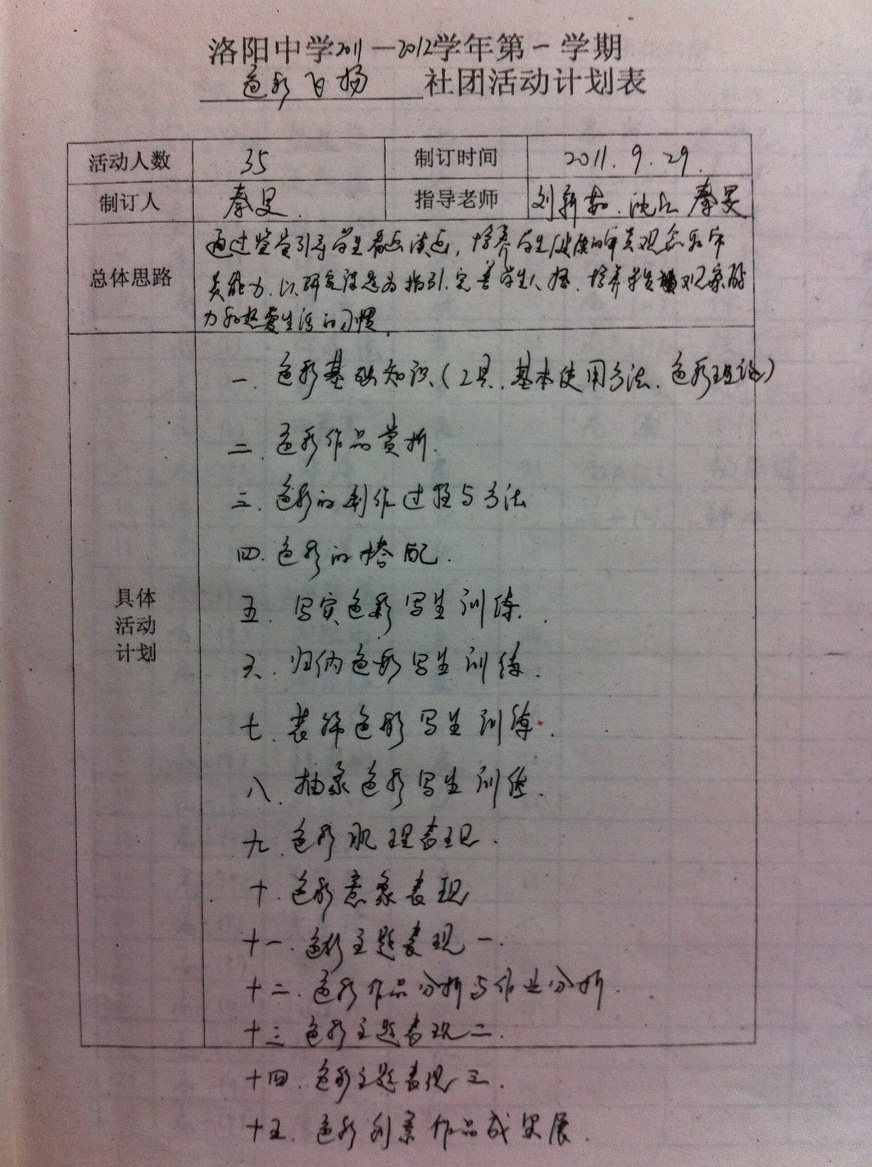 洛阳中学2011—2012学年第一学期
色彩飞扬 社团活动计划表
活动人数 35 制订时间 2011.9.29.
制订人 秦昊. 指导老师 刘新茹. 沈 秦昊
总体思路
通过鉴赏引导学生看画读画, 培养学生健康的审美观念和审
美能力. 以研究课题为指引. 完善学生人格. 培养学生观察能
力和热爱生活的习惯.
具体
活动
计划
一. 色彩基础知识(工具. 基本使用方法. 色彩理论)
二. 色彩作品赏析.
三. 色彩的制作过程与方法
四. 色彩的搭配.
五. 写实色彩写生训练.
六. 归纳色彩写生训练.
七. 装饰色彩写生训练.
八. 抽象色彩写生训练.
九. 色彩肌理表现.
十. 色彩意象表现
十一. 色彩主题表现一.
十二. 色彩作品分析与作业分析.
十三. 色彩主题表现二.
十四. 色彩主题表现三.
十五. 色彩创意作品成果展.